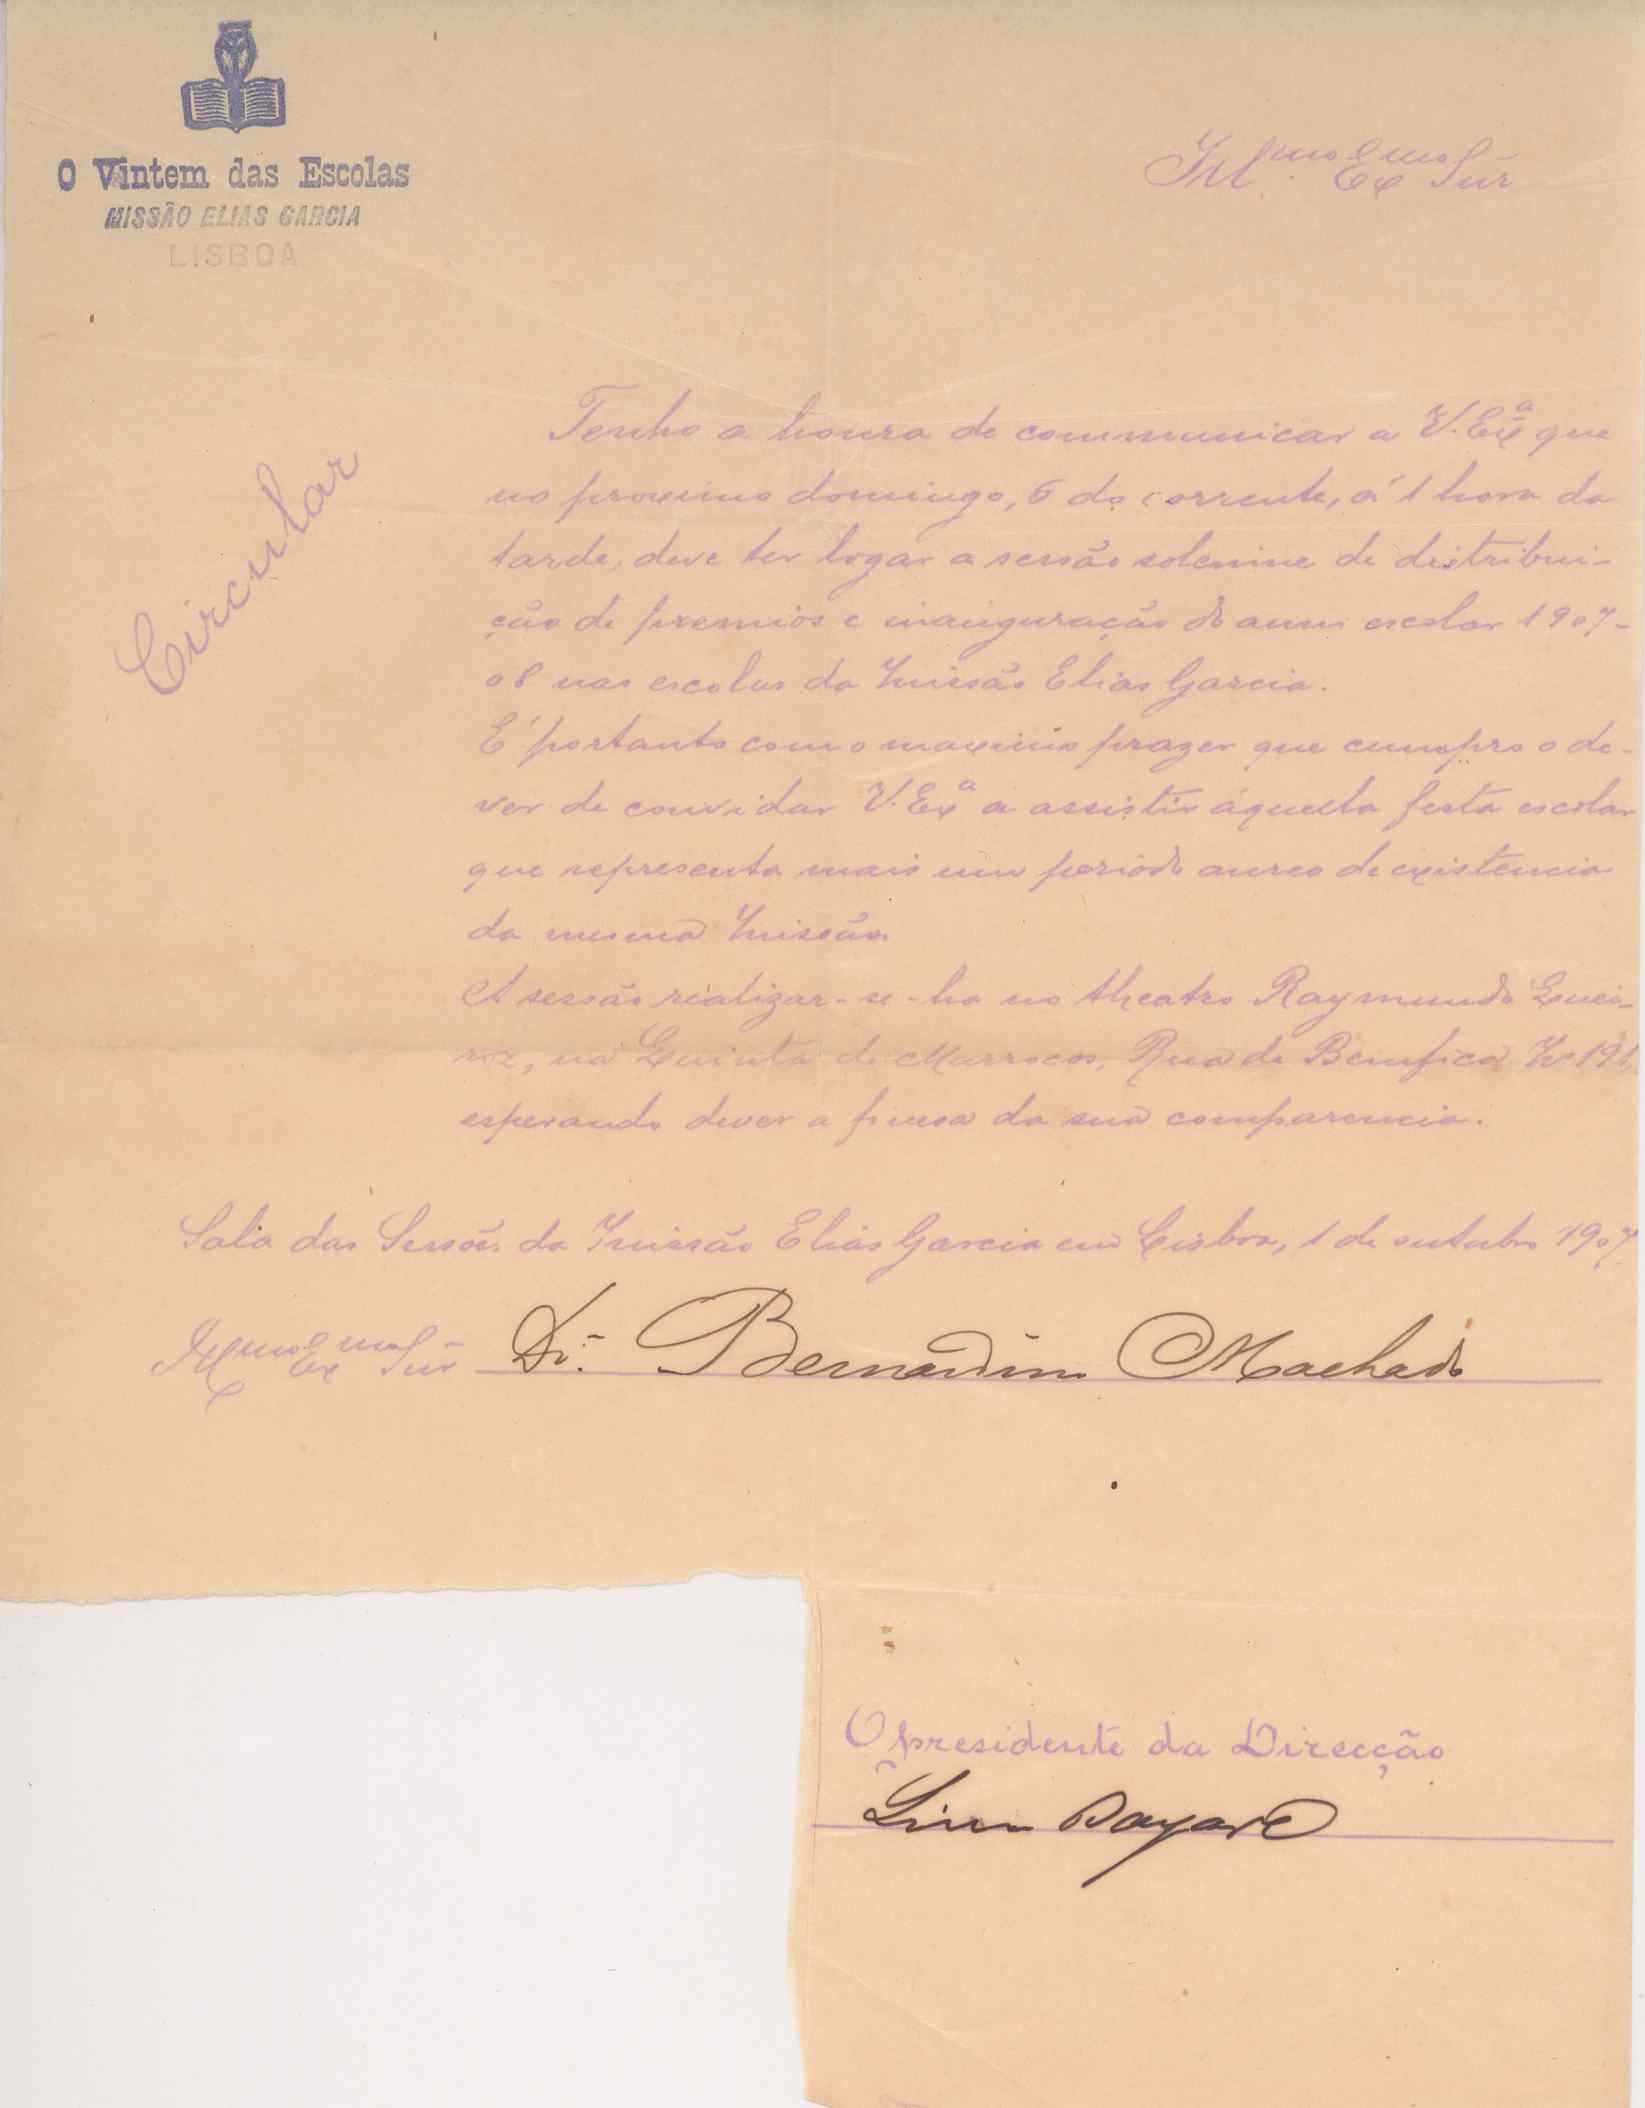 O Vintem das Escolas
MISSÃO ELIAS GARCIA
LISBOA
Ill.mo Ex.mo Snr
Circular
Tenho a honra de communicar a V. Exª que
no proximo domingo, 6 do corrente, á 1 hora da
tarde, deve ter logar a sessão solemne de distribui-
ção de premios e inauguração do anno escolar 1907-
08 nas escolas da Missão Elias Garcia.
É portanto com o maximo prazer que cumpro o de-
ver de convidar V. Exª a assistir áquella festa escolar
que representa mais um periodo aureo de existencia
da mesma Missão.
A sessão rializar-se-ha no theatro Raymundo Quei-
roz, na Quinta de Marrocos, Rua de Bemfica Nº
esperando dever a fineza da sua comparencia.
Sala das Sessões da Missão Elias Garcia em Lisboa, 1 de outubro 1907
Illmo Exmo Snr Dr. Bernardino Machado
O presidente da Direcção
Lima Bayard